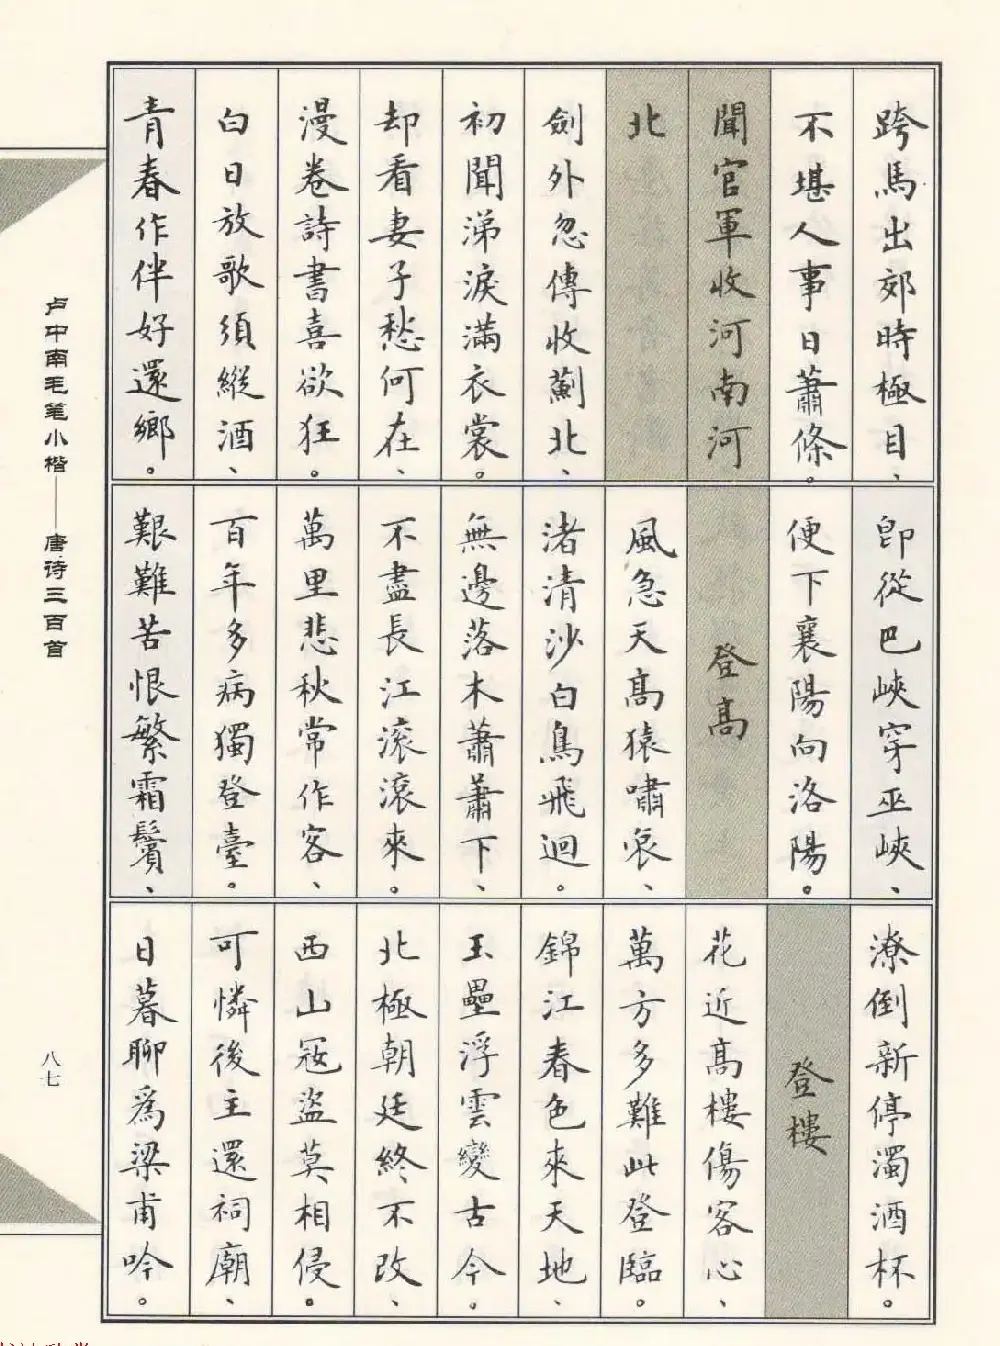 跨馬出郊時極目、
不堪人事日蕭條。
聞官軍收河南河
北
劍外忽傳收薊北、
初聞涕淚滿衣裳。
却看妻子愁何在、
漫卷詩書喜欲狂。
白日放歌須縱酒、
青春作伴好還鄉。
即從巴峽穿巫峽、
便下襄陽向洛陽。
登高
風急天高猿嘯哀、
渚清沙白鳥飛迴。
無邊落木蕭蕭下、
不盡長江滾滾來。
萬里悲秋常作客、
百年多病獨登臺。
艱難苦恨繁霜鬢、
潦倒新停濁酒杯。
登樓
花近高樓傷客心、
萬方多難此登臨。
錦江春色來天地、
玉壘浮雲變古今。
北極朝廷終不改、
西山寇盜莫相侵。
可憐後主還祠廟、
日暮聊爲梁甫吟。
卢中南毛笔小楷——唐诗三百首
八七